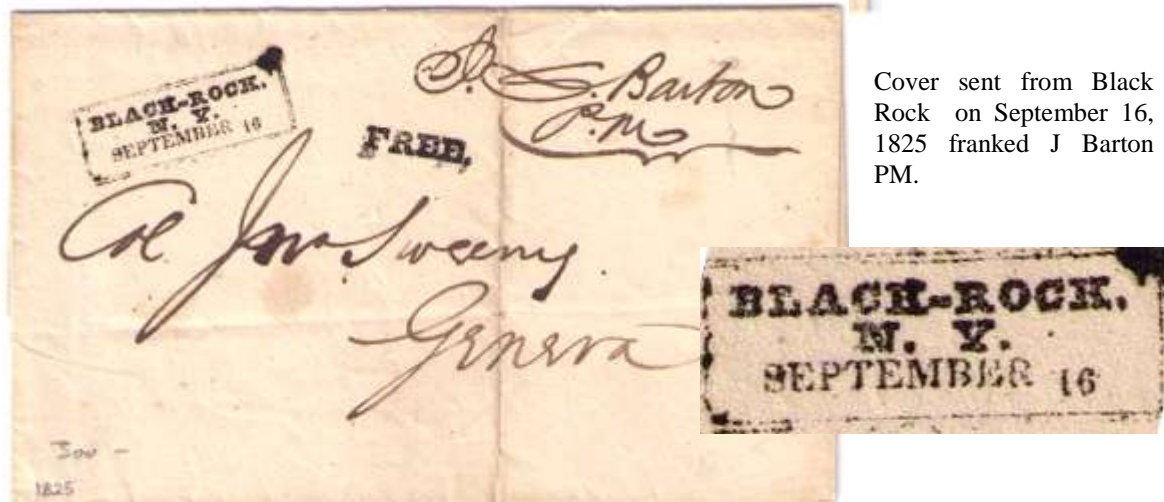 BLACK-ROCK.
N. Y.
SEPTEMBER 16
FREE,
Barton
P.M
Col Jno Sweeny.
Geneva
1825
Cover sent from Black
Rock on September 16,
1825 franked J Barton
PM.
BLACK-ROCK.
N. Y.
SEPTEMBER 16